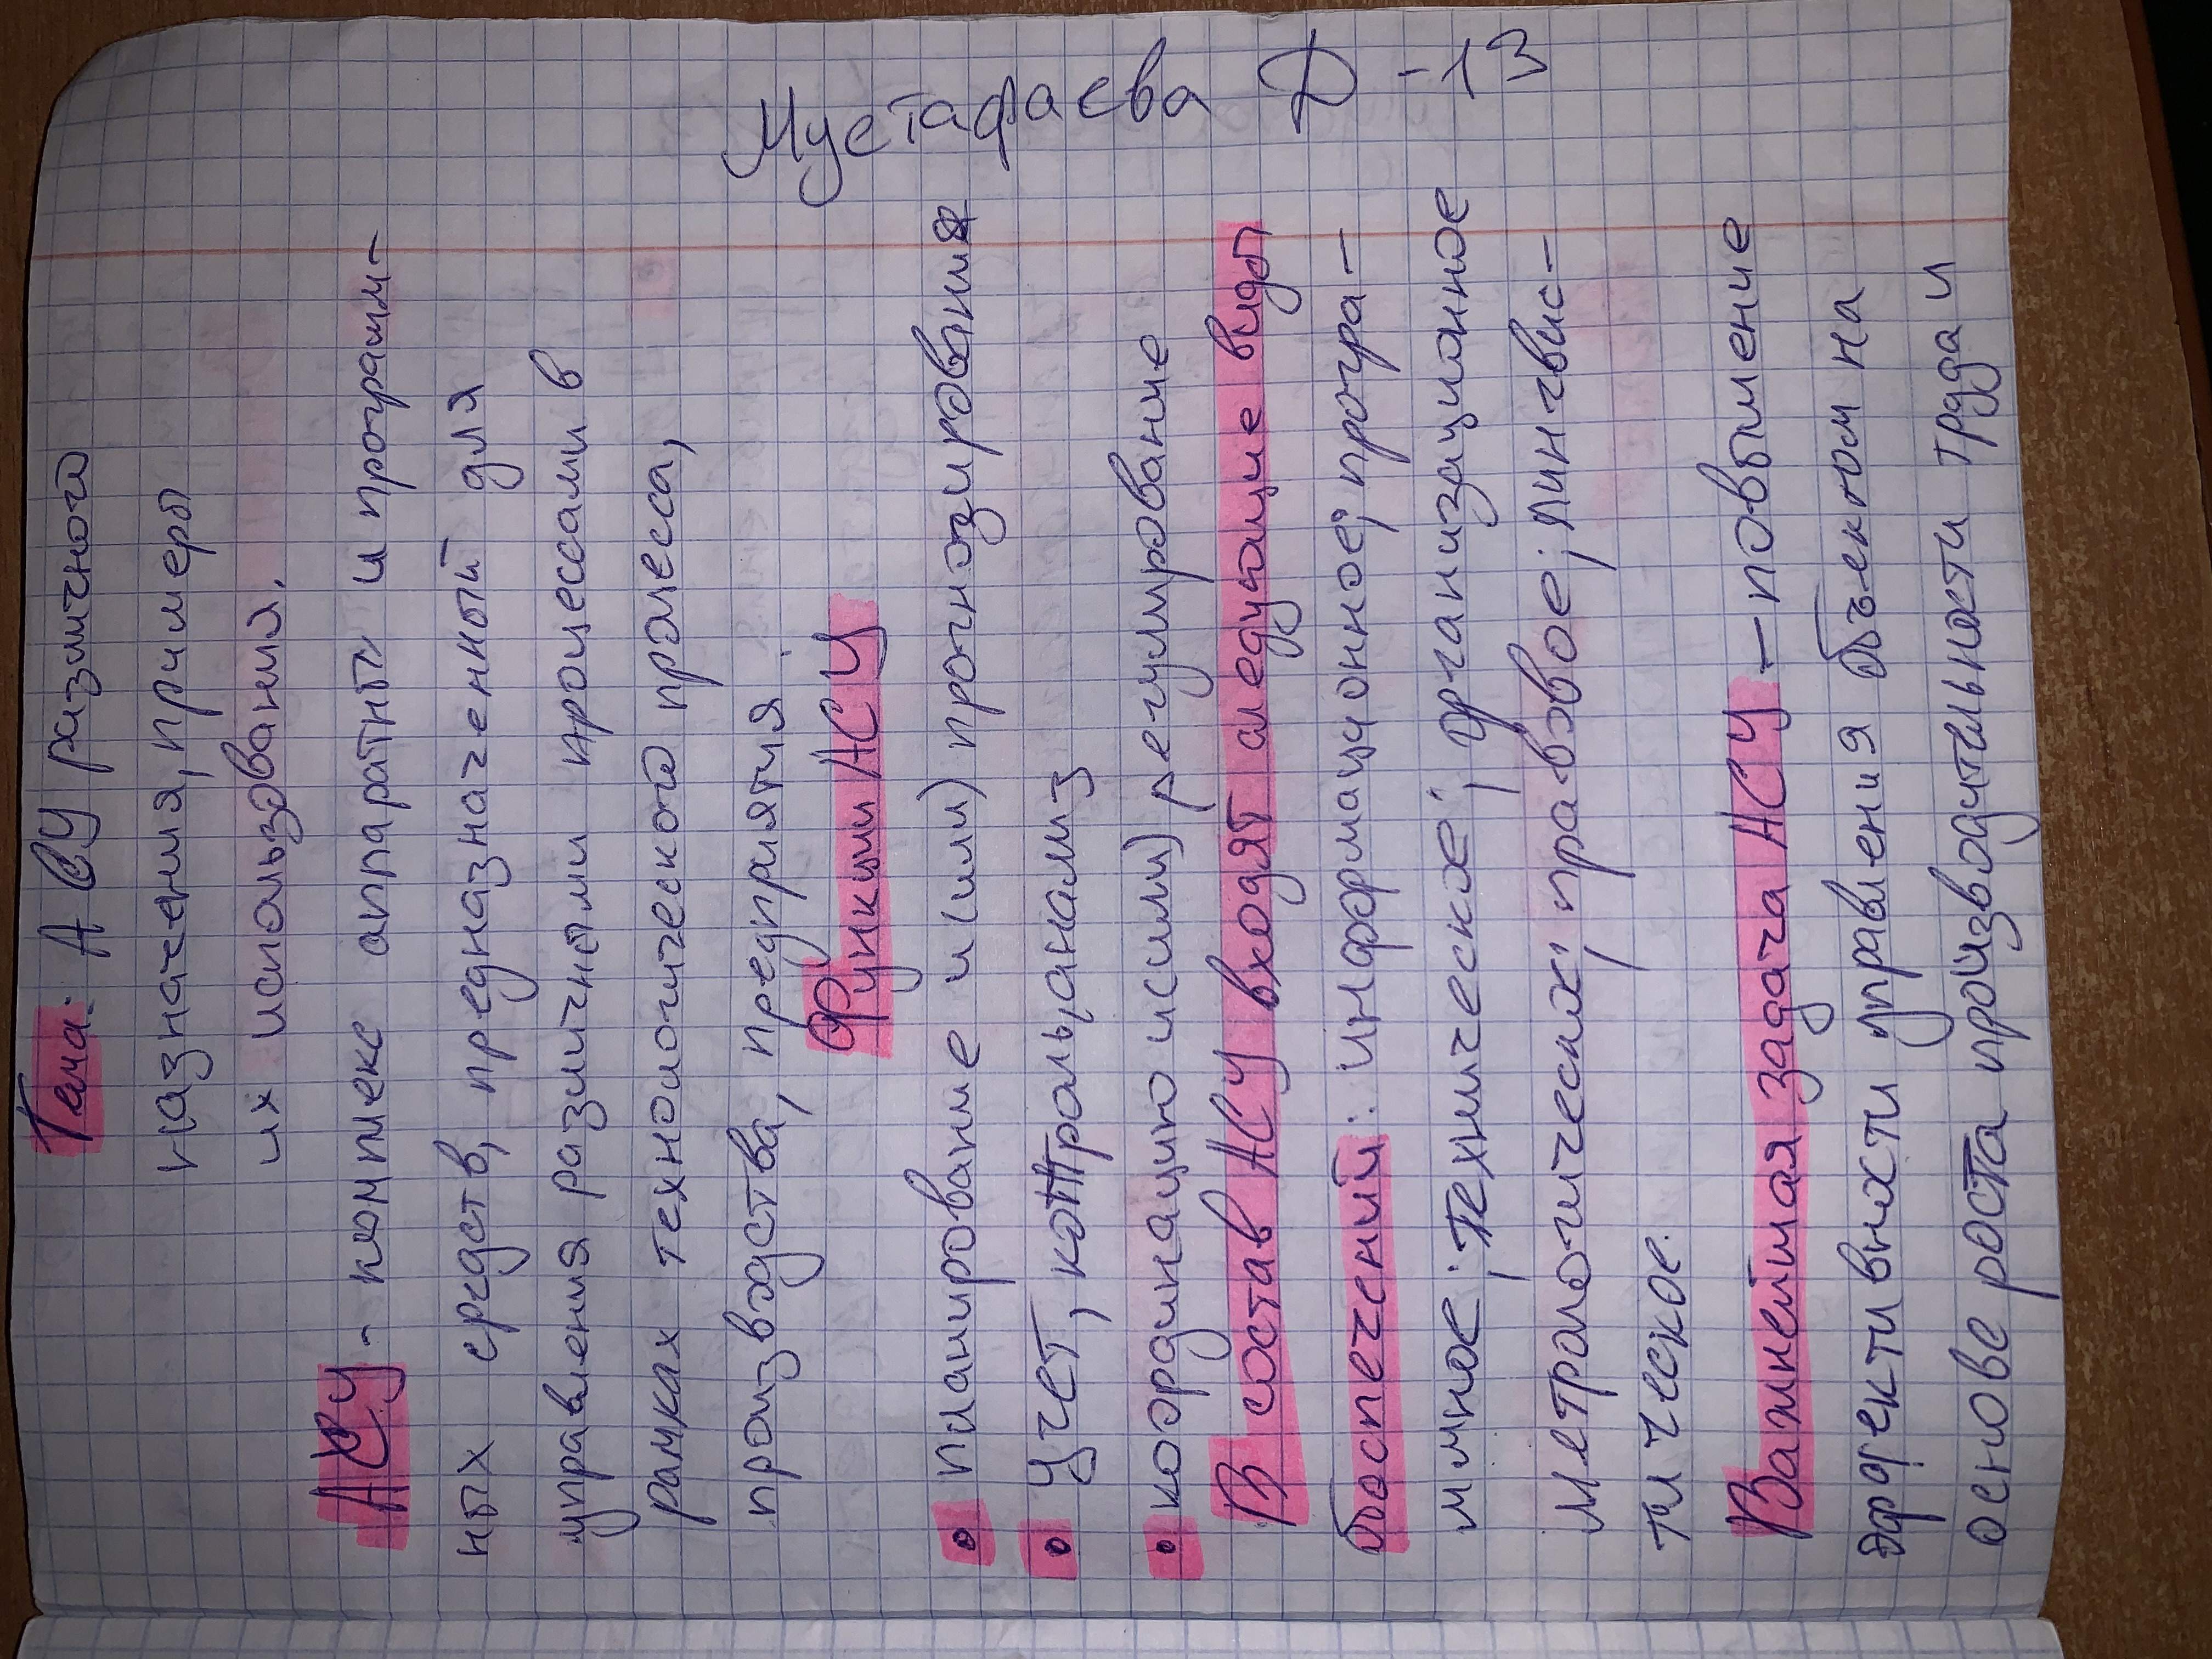 Тема: АСУ различной
назначения, примеры
их использования.
АСУ - комплекс аппаратных и програм-
ных средств, предназначенный для
управления различными процессами в
рамках технологического процесса,
производства, предприятия.
Функции АСУ
• планирование и (или) прогнозирования
• Учет, контроль, анализ
• коэрдинацию и (или) регулирование
В состав АСУ входят следующие виды
боспечений: информационное; програ-
ммное; техническое; организационное
метрологических; правовое; лингвис-
тическое.
Важнейшая задача АСУ - повышение
эффективности управления объектом на
основе роста производительности труда и
Мустафаева Д